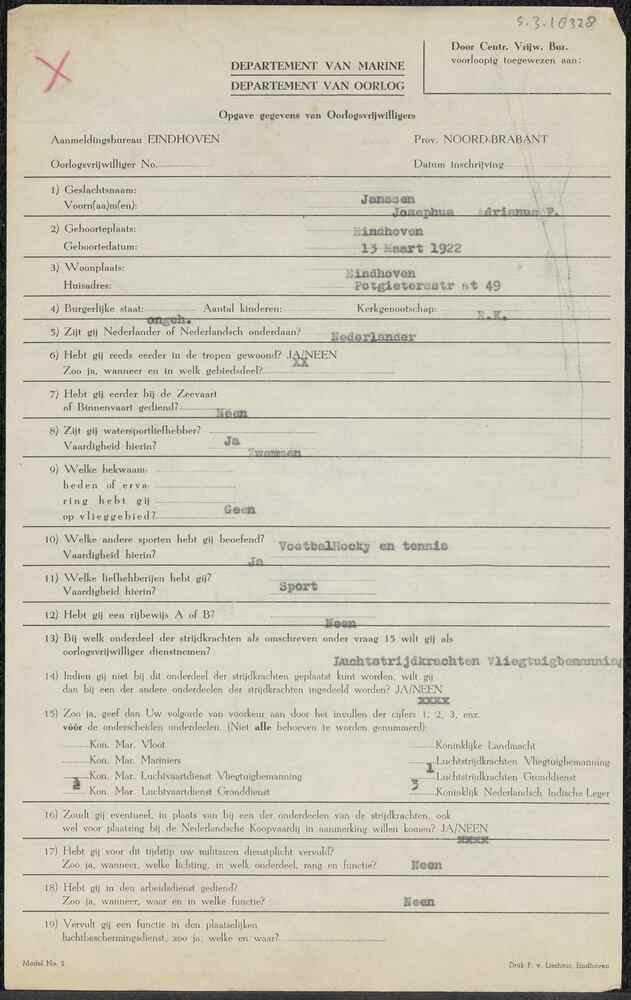 S.3.10328
Door Centr. Vrijw. Bur.
voorloopig toegewezen aan:
DEPARTEMENT VAN MARINE
DEPARTEMENT VAN OORLOG
Opgave gegevens van Oorlogsvrijwilligers
Aanmeldingsbureau EINDHOVEN Prov. NOORD-BRABANT
Oorlogsvrijwilliger No. Datum inschrijving
1) Geslachtsnaam: Janssen
Voorn(aa)m(en): Josephus Adrianus F.
2) Geboorteplaats: Eindhoven
Geboortedatum: 13 Maart 1922
3) Woonplaats: Eindhoven
Huisadres: Potgieterstr at 49
4) Burgerlijke staat: ongeh. Aantal kinderen: Kerkgenootschap: R.K.
5) Zijt gij Nederlander of Nederlandsch onderdaan? Nederlander
6) Hebt gij reeds eerder in de tropen gewoond? JA/NEEN
Zoo ja, wanneer en in welk gebiedsdeel? XX
7) Hebt gij eerder bij de Zeevaart
of Binnenvaart gediend? Neen
8) Zijt gij watersportliefhebber? Ja
Vaardigheid hierin? Zwemmen
9) Welke bekwaam-
heden of erva-
ring hebt gij
op vlieggebied? Geen
10) Welke andere sporten hebt gij beoefend? VoetbalHocky en tennis
Vaardigheid hierin? Ja
11) Welke liefhebberijen hebt gij? Sport
Vaardigheid hierin?
12) Hebt gij een rijbewijs A of B? Neen
13) Bij welk onderdeel der strijdkrachten als omschreven onder vraag 15 wilt gij als
oorlogsvrijwilliger dienstnemen? Luchtstrijdkrachten Vliegtuigbemanning
14) Indien gij niet bij dit onderdeel der strijdkrachten geplaatst kunt worden, wilt gij
dan bij een der andere onderdeelen der strijdkrachten ingedeeld worden? JA/NEEN
XXXX
15) Zoo ja, geef dan Uw volgorde van voorkeur aan door het invullen der cijfers 1, 2, 3, enz.
vóór de onderscheiden onderdeelen. (Niet alle behoeven te worden genummerd):
Kon. Mar. Vloot Koninklijke Landmacht
Kon. Mar. Mariniers 1 Luchtstrijdkrachten Vliegtuigbemanning
2 Kon. Mar. Luchtvaartdienst Vliegtuigbemanning Luchtstrijdkrachten Gronddienst
Kon. Mar. Luchtvaartdienst Gronddienst 3 Koninklijk Nederlandsch Indische Leger
16) Zoudt gij eventueel, in plaats van bij een der onderdeelen van de strijdkrachten, ook
wel voor plaatsing bij de Nederlandsche Koopvaardij in aanmerking willen komen? JA/NEEN
XXXX
17) Hebt gij voor dit tijdstip uw militairen dienstplicht vervuld?
Zoo ja, wanneer, welke lichting, in welk onderdeel, rang en functie? Neen
18) Hebt gij in den arbeidsdienst gediend?
Zoo ja, wanneer, waar en in welke functie? Neen
19) Vervult gij een functie in den plaatselijken
luchtbeschermingsdienst, zoo ja, welke en waar?
Model No. 2 Druk F. v. Lieshout, Eindhoven